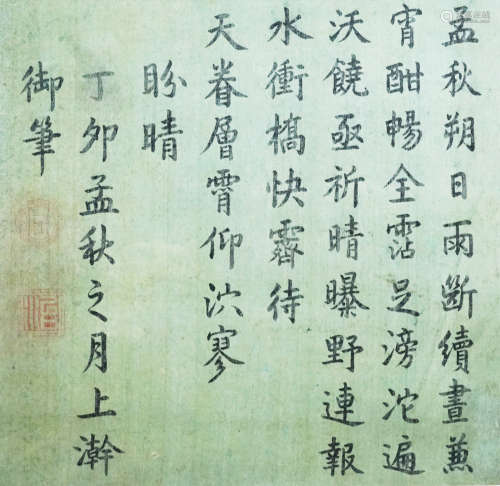 孟秋朔日雨斷續晝兼
宵酣暢全霑足滂沱遍
沃饒亟祈晴曝野連報
水衝槗快霽待
天眷層霄仰泬寥
盼晴
丁卯孟秋之月上澣
御筆